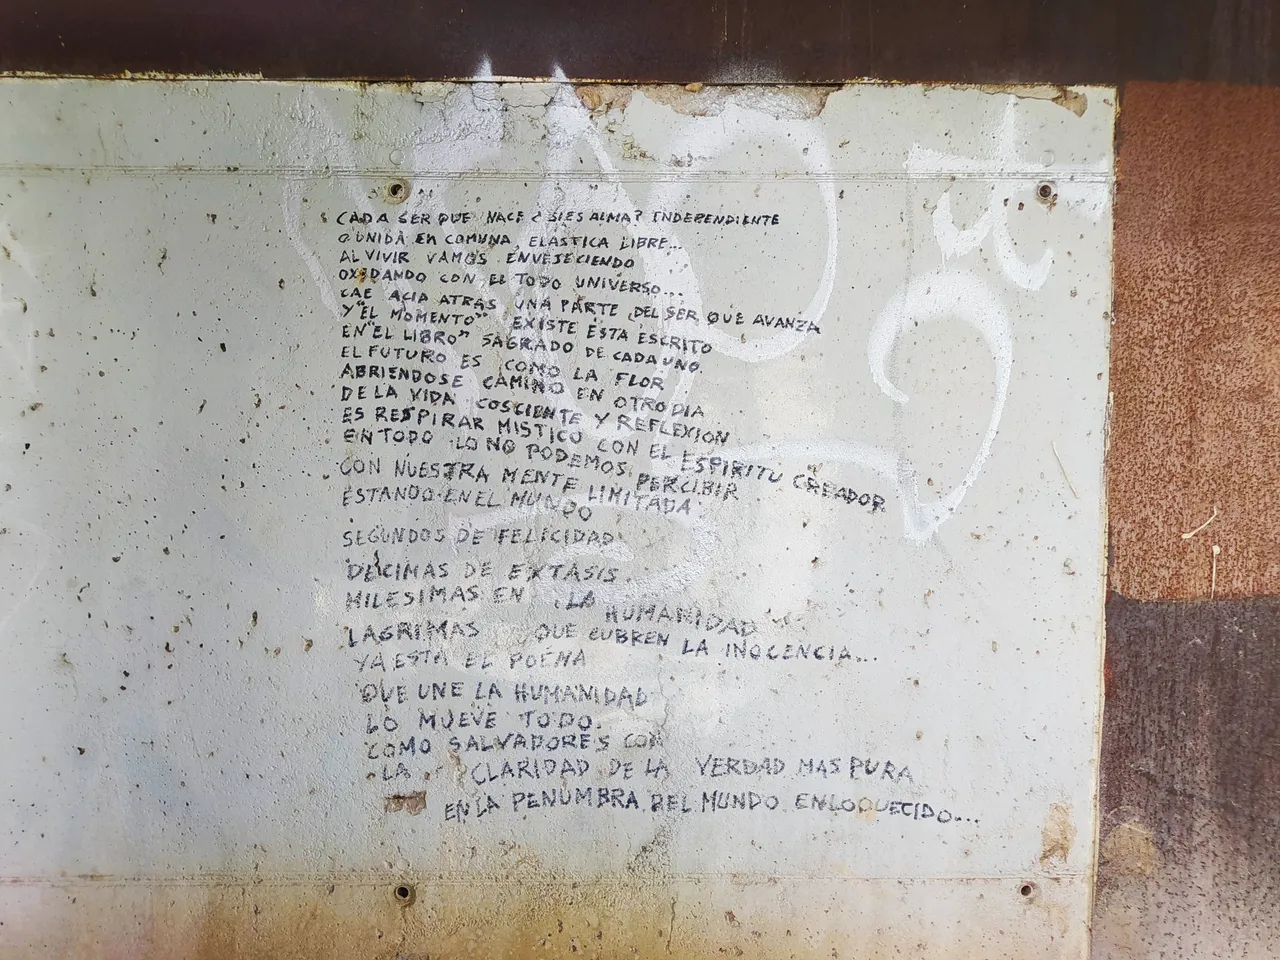 CADA SER QUE NACE ¿SI ES ALMA? INDEPENDIENTE
O UNIDA EN COMUNA, ELASTICA LIBRE...
AL VIVIR VAMOS ENVEJECIENDO
OXIDANDO CON EL TODO UNIVERSO...
CAE ACIA ATRAS UNA PARTE DEL SER QUE AVANZA
Y "EL MOMENTO" EXISTE ESTA ESCRITO
EN "EL LIBRO" SAGRADO DE CADA UNO.
EL FUTURO ES COMO LA FLOR
ABRIENDOSE CAMINO EN OTRO DIA
DE LA VIDA COSCIENTE Y REFLEXION
ES RESPIRAR MISTICO CON EL ESPIRITU CREADOR
EN TODO LO NO PODEMOS PERCIBIR
CON NUESTRA MENTE LIMITADA
ESTANDO EN EL MUNDO
SEGUNDOS DE FELICIDAD
DECIMAS DE EXTASIS.
MILESIMAS EN LA HUMANIDAD
LAGRIMAS QUE CUBREN LA INOCENCIA...
YA ESTA EL POEMA
QUE UNE LA HUMANIDAD
LO MUEVE TODO.
COMO SALVADORES CON
LA CLARIDAD DE LA VERDAD MAS PURA
EN LA PENUMBRA DEL MUNDO ENLOQUECIDO...